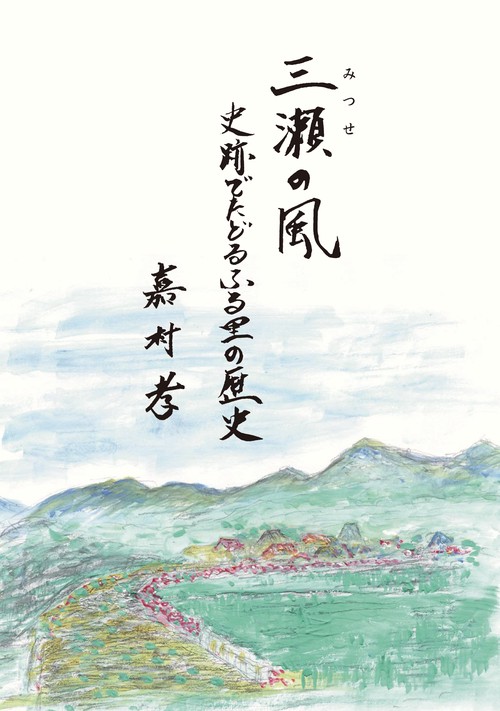 みつせ
三瀬の風
史跡でたどるふる里の歴史
嘉村孝